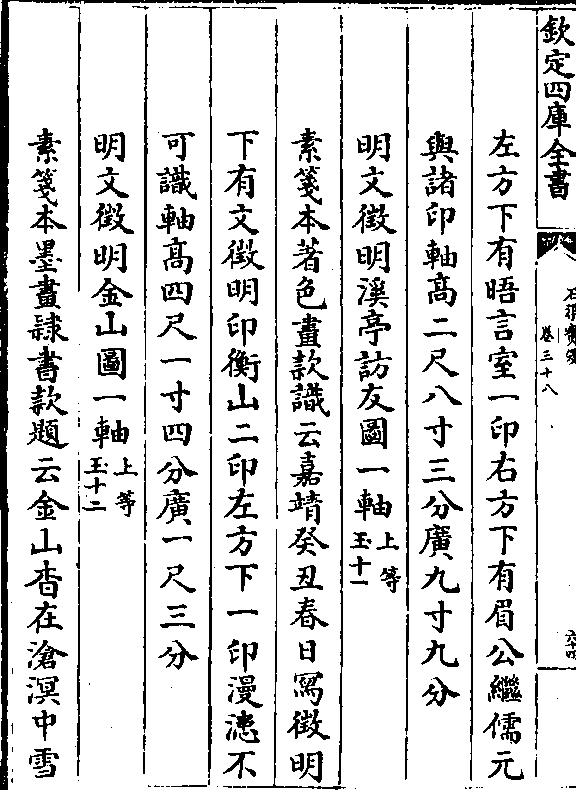 欽定四庫全書
石渠寶笈
卷三十八
六十四
左方下有晤言室一印右方下有眉公繼儒元
與諸印軸高二尺八寸三分廣九寸九分
明文徴明溪亭訪友圖一軸上等玉十一
素箋本著色畫款識云嘉靖癸丑春日寫徴明
下有文徴明印衡山二印左方下一印漫漶不
可識軸高四尺一寸四分廣一尺三分
明文徴明金山圖一軸上等玉十二
素箋本墨畫隷書款題云金山杳在滄溟中雪